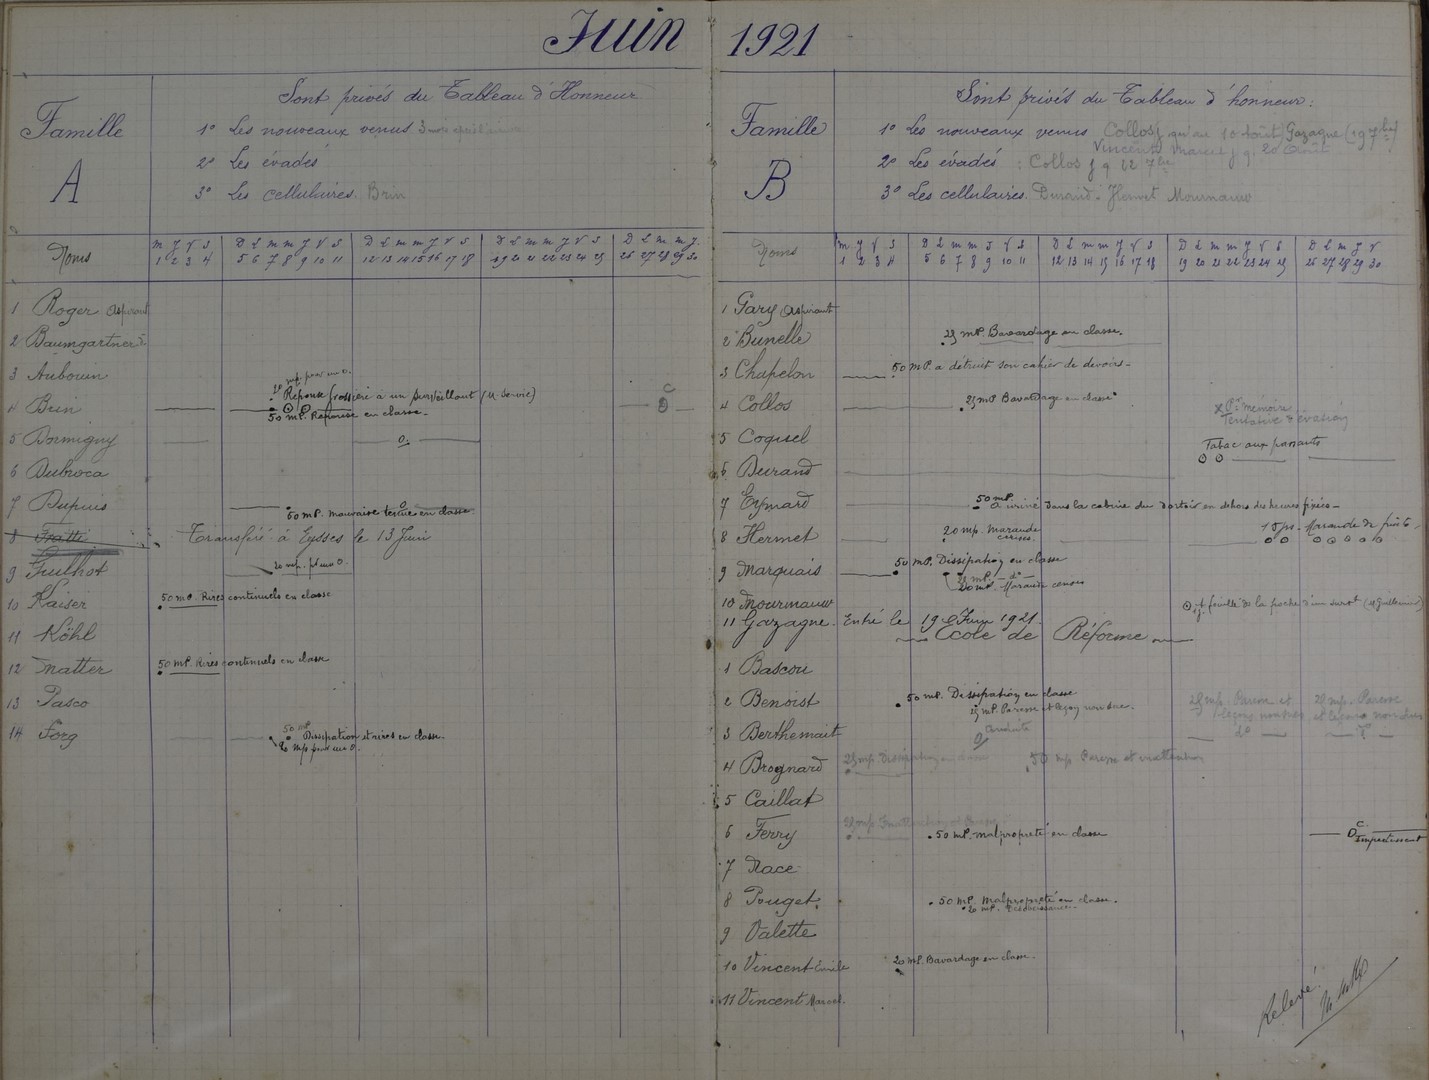 Juin 1921
Famille A
Sont privés du Tableau d'Honneur
1° Les nouveaux venus
2° Les évadés
3° Les cellulaires. Brin
Noms
M J V S D L M M J V S D L M M J V S D L M M J V S D L M M J
1 2 3 4 5 6 7 8 9 10 11 12 13 14 15 16 17 18 19 20 21 22 23 24 25 26 27 28 29 30
1 Roger Aspirant
2 Baumgartner
3 Aubouin
20 mp. pour un 0.
Réponse grossière à un surveillant
4 Brin
50 mP. Réponse en classe
5 Dormigny
0.
6 Dubroca
7 Dupuis
50 mP. mauvaise tenue en classe
8
Transféré à Eysses le 13 Juin
9 Guilhot
20 mp. pr un 0.
10 Kaiser
50 mP Rires continuels en classe
11 Köhl
12 Natter
50 mP. Rires continuels en classe
13 Pasco
14 Forg
50 mP Dissipation et rires en classe.
20 mp pour un 0.
Famille B
Sont privés du Tableau d'honneur:
1° Les nouveaux venus Collos j. qu'au 10 Août Gazagne (19 7bre)
Vincent Marcel j. q. 20 Août
2° Les évadés : Collos j q 22 7bre
3° Les cellulaires. Durand. Hermet Mournaux
Noms
M J V S D L M M J V S D L M M J V S D L M M J V S D L M J V
1 2 3 4 5 6 7 8 9 10 11 12 13 14 15 16 17 18 19 20 21 22 23 24 25 26 27 28 29 30
1 Gary Aspirant
2 Bunelle
25 mP. Bavardage en classe.
3 Chapelon
50 mP. a détruit son cahier de devoirs
4 Collos
25 mP Bavardage en classe
Pr mémoire
Tentative d'évasion
5 Coqisel
Tabac aux passants
6 Durand
7 Eymard
50 mP. a uriné dans la cabine du dortoir en dehors des heures fixées
8 Hermet
20 mp. Maraude cerises
Maraude de fruits
9 Marquais
50 mP. Dissipation en classe
25 mP. — do —
20 mP. Maraude cerises
10 Mourmaux
11 Gazagne. Entré le 19 Juin 1921.
Ecole de Réforme
1 Bascou
2 Benoist
50 mP. Dissipation en classe
25 mP. Paresse et leçon non sue.
25 mp. Paresse et leçons non sues
25 mp. Paresse et leçons non sues
3 Berthemait
4 Brognard
25 mp Dissipation en classe
50 mp Paresse et inattention
5 Caillat
6 Ferry
50 mP. malpropreté en classe
7 Race
8 Pouget
50 mP. Malpropreté en classe.
20 mP. Désobéissance
9 Valette
10 Vincent Emile
20 mP. Bavardage en classe
11 Vincent Marcel.
Relevé!